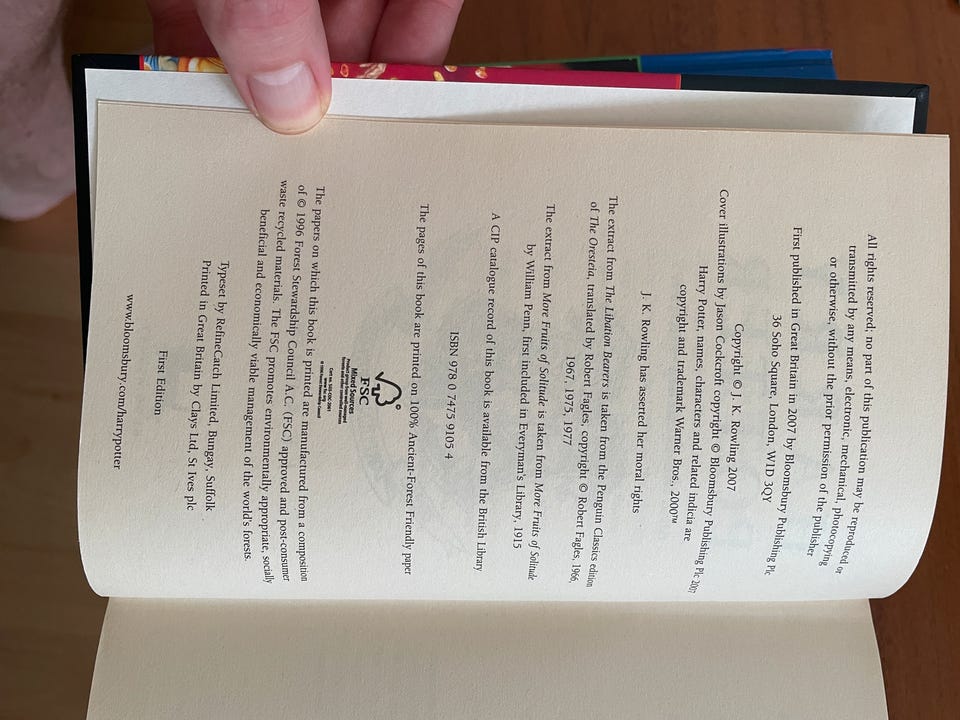 All rights reserved; no part of this publication may be reproduced or
transmitted by any means, electronic, mechanical, photocopying
or otherwise, without the prior permission of the publisher
First published in Great Britain in 2007 by Bloomsbury Publishing Plc
36 Soho Square, London, W1D 3QY
Copyright © J. K. Rowling 2007
Cover illustrations by Jason Cockcroft copyright © Bloomsbury Publishing Plc 2007
Harry Potter, names, characters and related indicia are
copyright and trademark Warner Bros., 2000™
J. K. Rowling has asserted her moral rights
The extract from The Libation Bearers is taken from the Penguin Classics edition
of The Oresteia, translated by Robert Fagles, copyright © Robert Fagles, 1966,
1967, 1975, 1977
The extract from More Fruits of Solitude is taken from More Fruits of Solitude
by William Penn, first included in Everyman's Library, 1915
A CIP catalogue record of this book is available from the British Library
ISBN 978 0 7475 9105 4
The pages of this book are printed on 100% Ancient-Forest Friendly paper
FSC
Mixed Sources
The papers on which this book is printed are manufactured from a composition
of © 1996 Forest Stewardship Council A.C. (FSC) approved and post-consumer
waste recycled materials. The FSC promotes environmentally appropriate, socially
beneficial and economically viable management of the world's forests.
Typeset by RefineCatch Limited, Bungay, Suffolk
Printed in Great Britain by Clays Ltd, St Ives plc
First Edition
www.bloomsbury.com/harrypotter